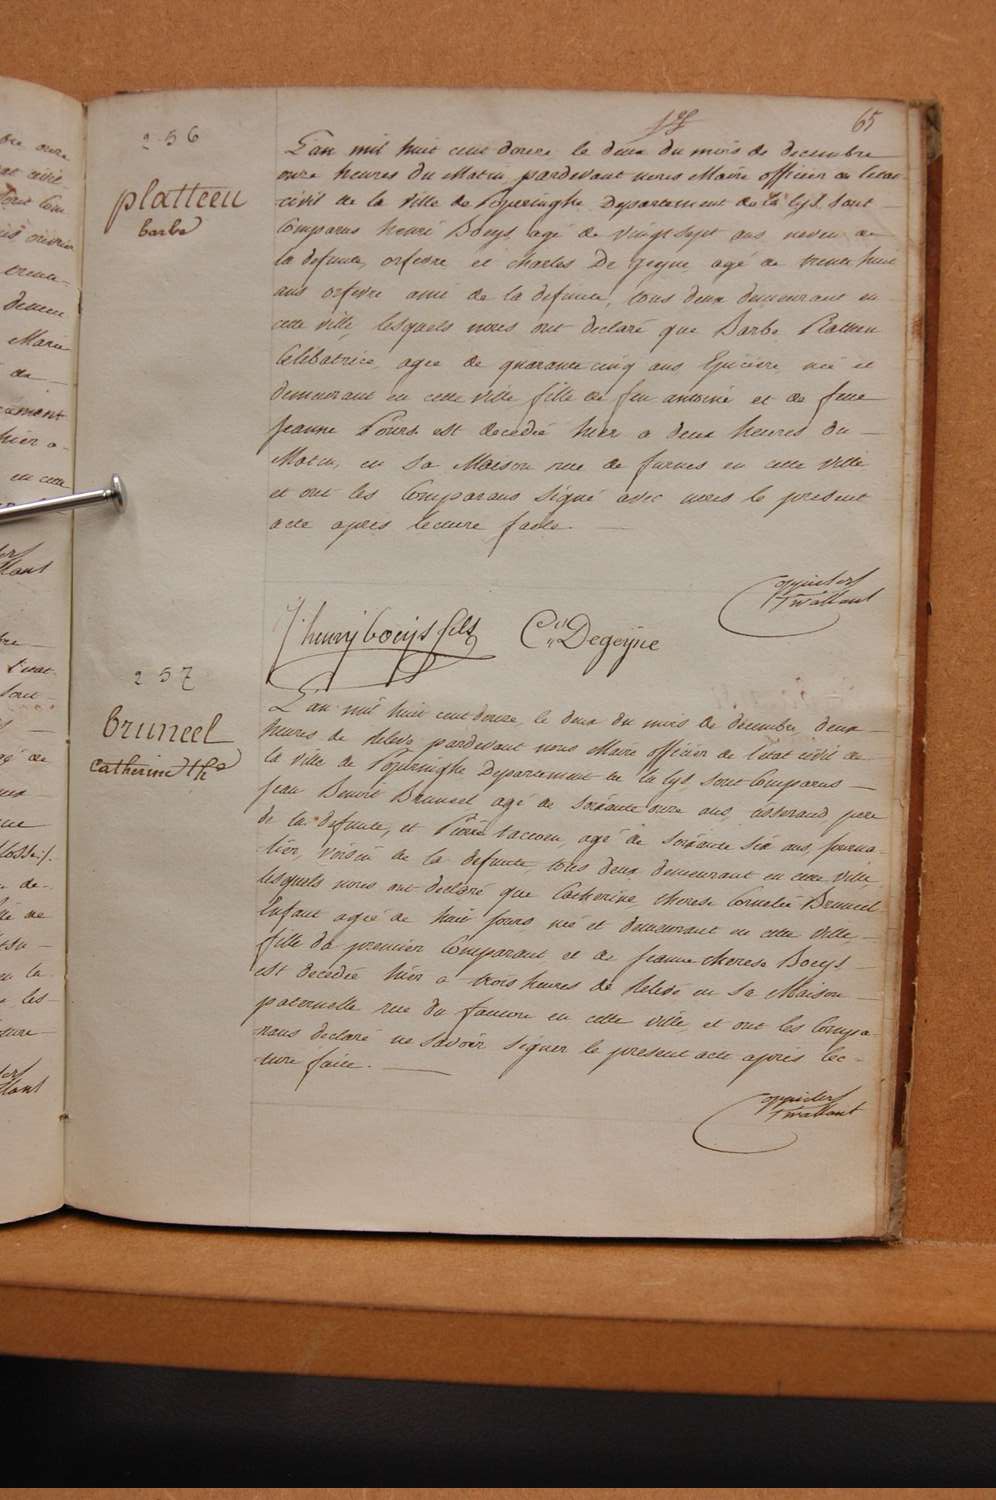 65
256
platteeu
barbe
L'an mil huit cent douze le deux du mois de decembre
onze heures du Matin pardevant nous Maire officier de letat
civil de la ville de Poperinghe Departement de la Lys. sont
Comparus henri Boeys agé de vingt sept ans neveu de
la defunte, orfevre et charles De geyne agé de trente huit
ans orfevre ami de la defunte, tous deux demeurant en
cette ville, lesquels nous ont declaré que Barbe Platteeu
Celibatrice, agee de quarante cinq ans Epiciere, née et
demeurant en cette ville fille de feu antoine et de feue
Jeanne est decedée hier a deux heures du
Matin, en sa Maison rue de furnes en cette ville
et ont les Comparans signé avec nous le present
acte après lecture faite.
henrij boeijs fils
Degeijne
257
bruneel
catherine th
L'an mil huit cent douze, le deux du mois de decembre deux
heures de relevée pardevant nous Maire officier de l'état civil de
la ville de Poperinghe Departement de la Lys, sont Comparus
Jean Benoit Bruneel agé de soixante onze ans, tisserand pere
de la defunte, et Pierre agé de soixante six ans, journa-
lier, voisin de la defunte, tous deux demeurant en cette ville,
lesquels nous ont declaré que Catherine therese Cornelie Bruneel
Enfant agée de huit jours née et demeurant en cette ville,
fille du premier Comparant et de jeanne therese Boeys
est decedée hier a trois heures de relevée en sa Maison
paternelle rue du en cette ville, et ont les Compa-
rans declaré ne savoir signer le present acte après lec-
ture faite.